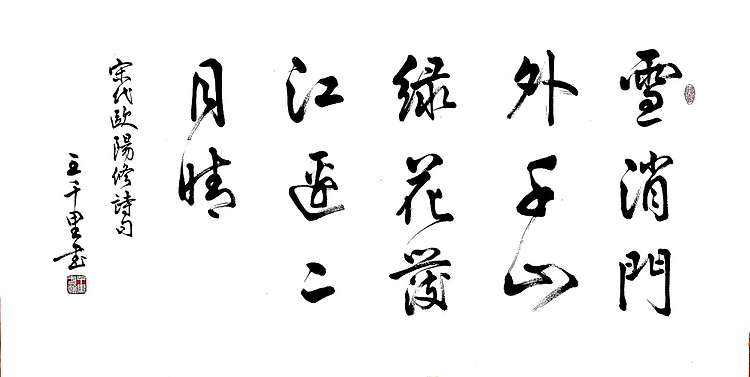 雪消門
外千山
绿花發
江邊二
月晴
宋代歐陽修詩句
王千里书